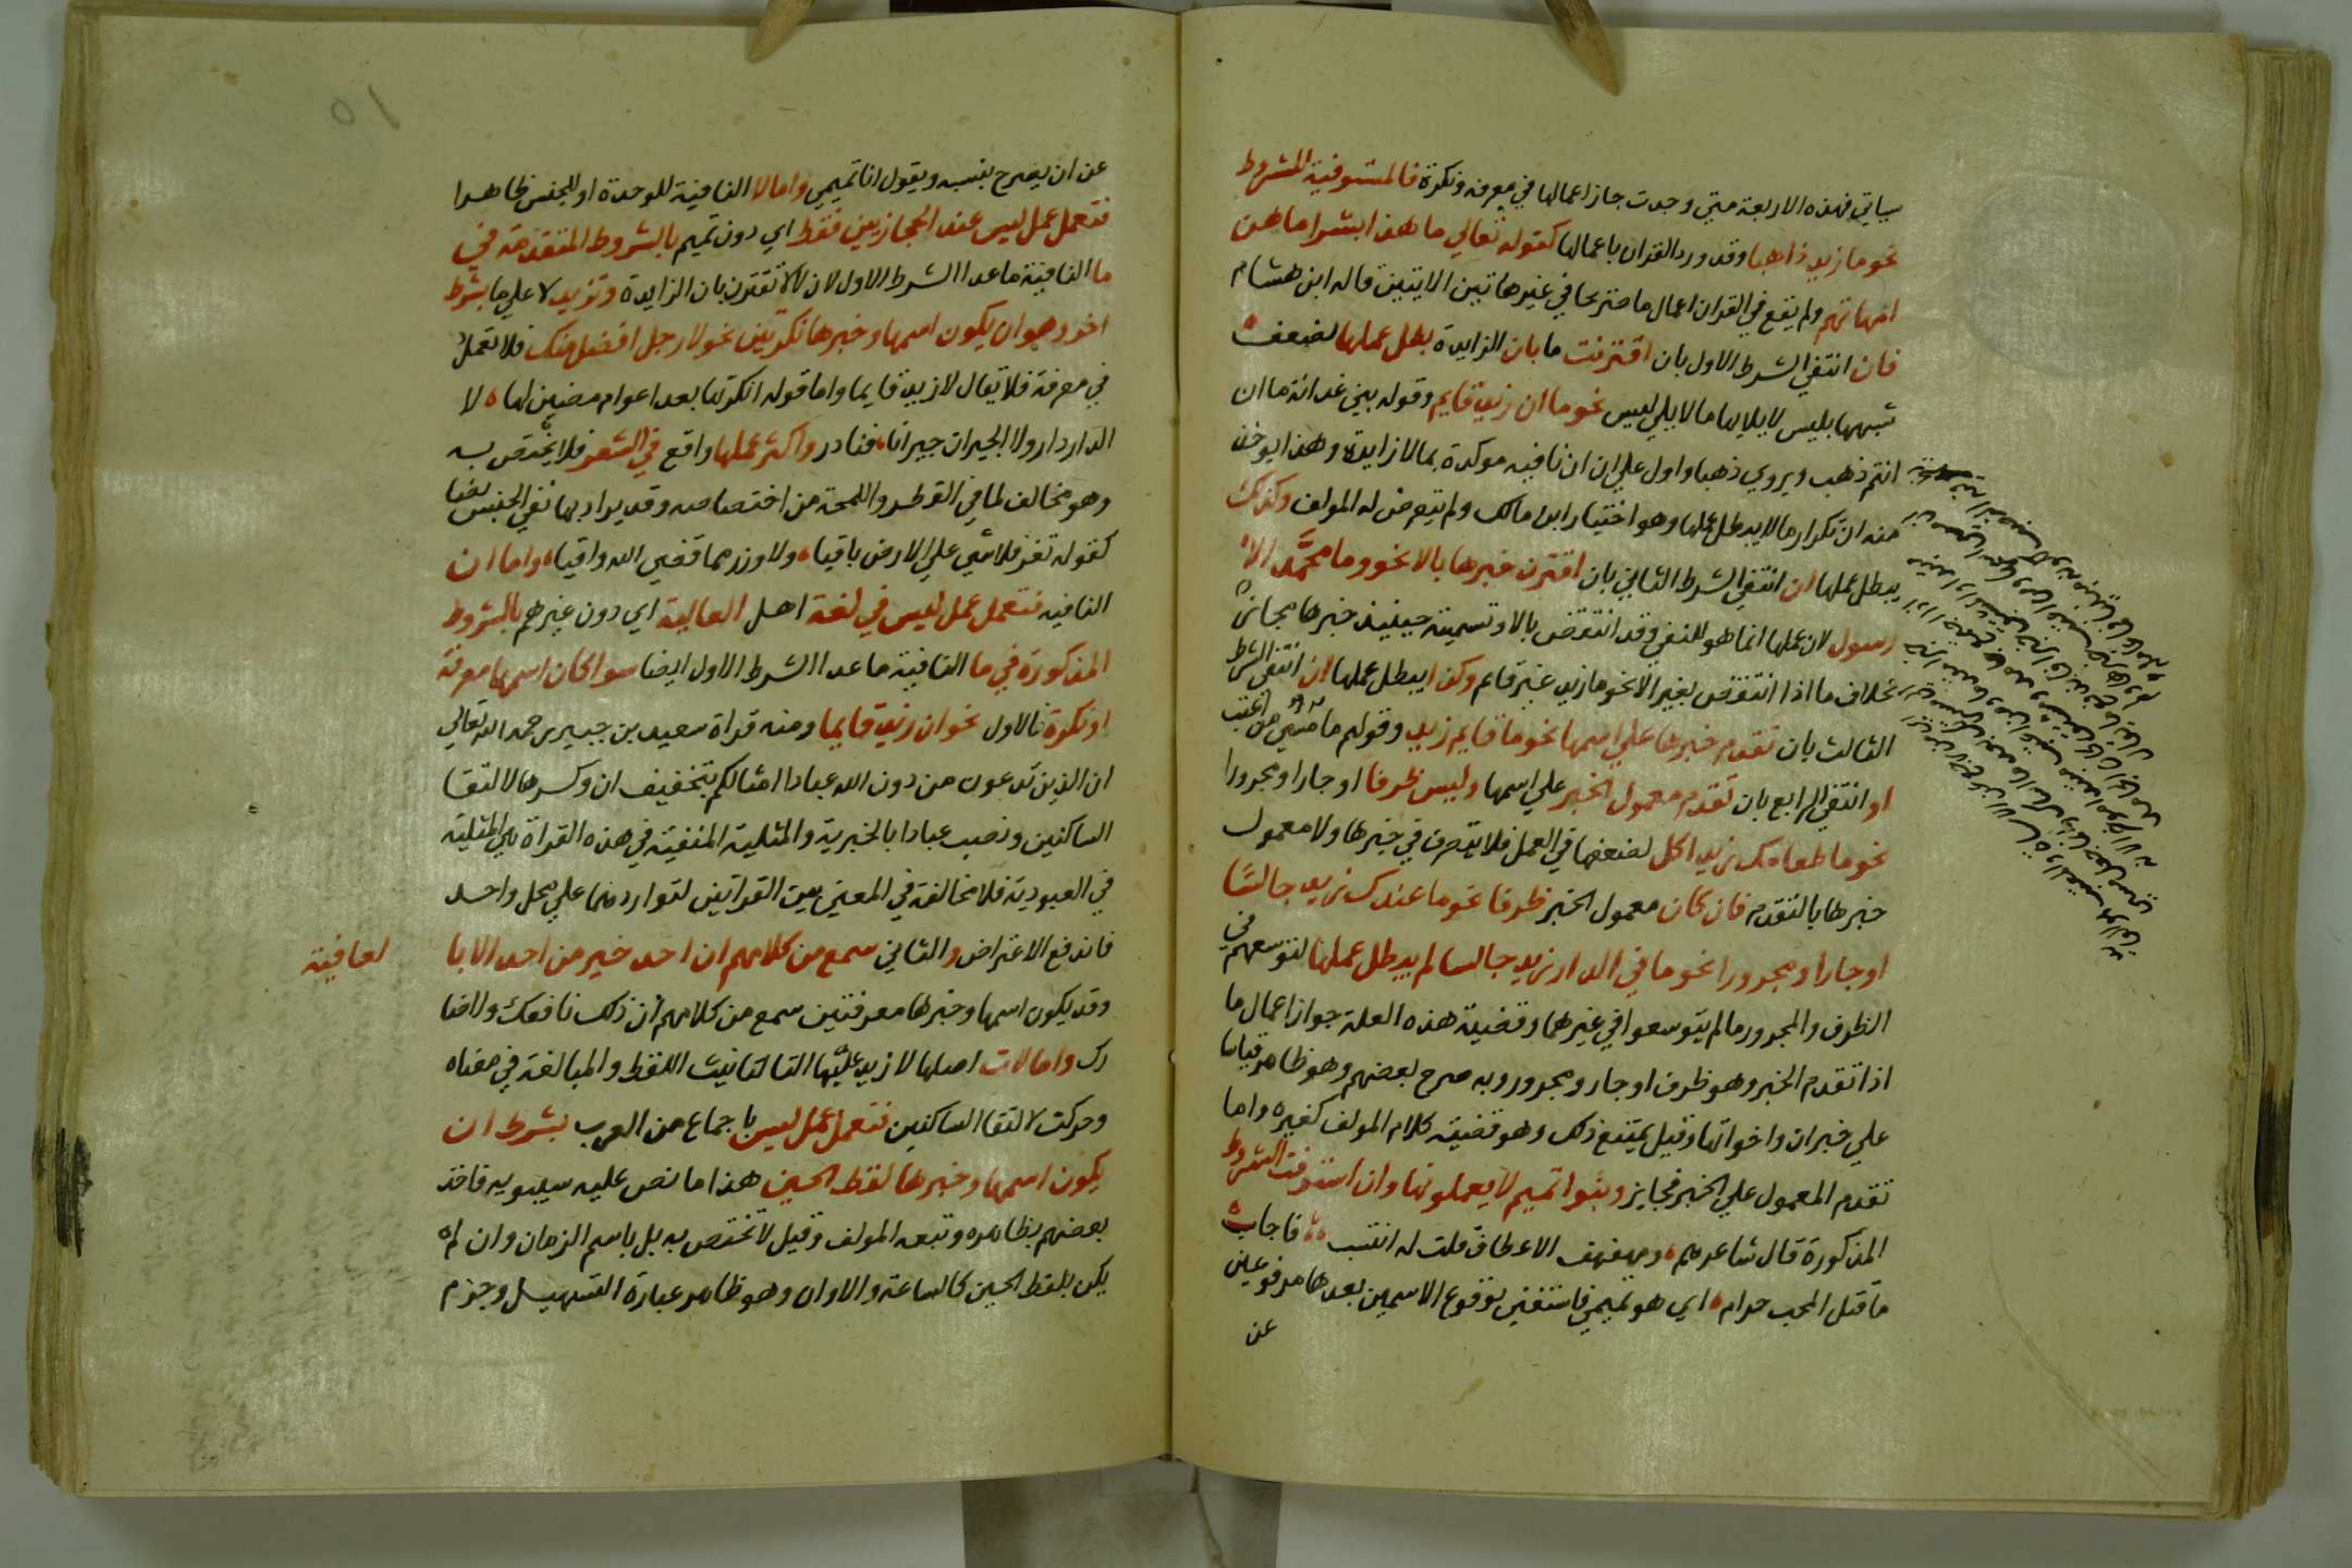 سياتي فهذه الاربعة متي وجدت جاز اعمالها في معرفه ونكرة فالمستوفية للشروط
نحو ما زيد ذاهبا وقد ورد القران باعمالها كقوله تعالي ما هذا بشرا ما هن
امهاتهم ولم يقع في القران اعمال ما صريحا في غير هاتين الايتين قاله ابن هشام
فان انتفي الشرط الاول بان اقترنت ما بان الزايدة بطل عملها لضعف
شبهها بليس لايلايها ما لا يلي ليس نحو ما ان زيد قايم وقوله بني غدانة ما ان
انتم ذهب ويروي ذهبا واول علي ان ان نافيه موكدة بما لا زايدة وهذا يوخذ
منه ان تكرار ما لا يبطل عملها وهو اختيار ابن مالك ولم يتعرض له المولف وكذلك
يبطل عملها ان انتفي الشرط الثاني بان اقترن خبرها بالا نحو وما محمد الا
رسول لان عملها انما هو للنفي وقد انتقض بالا وتسميته حينيذ خبرها مجاز
بخلاف ما اذا انتقض بغير الا نحو ما زيد غير قايم وكذا يبطل عملها ان انتفي الشرط
الثالث بان تقدم خبرها علي اسمها نحو ما قايم زيد وقولهم ما مسي من اعتب
او انتفي الرابع بان تقدم معمول الخبر علي اسمها وليس ظرفا او جارا ومجرورا
نحو ما طعامك زيد اكل لضعفها في العمل فلا يتصرف في خبرها ولا معمول
خبرها بالتقدم فان كان معمول الخبر ظرفا نحو ما عندك زيد جالسا
او جارا ومجرورا نحو ما في الدار زيد جالسا لم يبطل عملها لتوسعهم في
الظرف والمجرور ما لم يتوسعوا في غيرهما وقضية هذه العلة جواز اعمال ما
اذا تقدم الخبر وهو ظرف او جار ومجرور وبه صرح بعضهم وهو ظاهر قياسا
علي خبر ان واخواتها وقيل يمتنع ذلك وهو قضية كلام المولف كغيره واما
تقدم المعمول علي الخبر فجايز وبنوا تميم لا يعملونها وان استوفت الشروط
المذكورة قال شاعرهم ومهفهف الاعطاف قلت له انتسب فاجاب
ما قتل المحب حرام اي هو تميمي فاستغني بوقوع الاسمين بعدها مرفوعين
عن
عن ان يصرح بنسبه ويقول انا تميمي واما لا النافية للوحدة او للجنس ظاهرا
فتعمل عمل ليس عند الحجازيين فقط اي دون تميم بالشروط المتقدمة في
ما النافية ما عدا الشرط الاول لان لا لا تقترن بان الزايدة وتزيد لا علي ما بشرط
اخر وهو ان يكون اسمها وخبرها نكرتين نحو لا رجل افضل منك فلا تعمل
في معرفة فلا يقال لا زيد قايما واما قوله انكرتها بعد اعوام مضين لها لا
الدار دار ولا الجيران جيرانا فنادر واكثر عملها واقع في الشعر فلا يختص به
وهو مخالف لما في القطر واللمحة من اختصاصه وقد يراد بها نفي الجنس نصا
كقوله تعز فلا شي علي الارض باقيا ولا وزر مما قضي الله واقيا واما ان
النافيه فتعمل عمل ليس في لغة اهل العالية اي دون غيرهم بالشروط
المذكورة في ما النافية ما عدا الشرط الاول ايضا سوا كان اسمها معرفة
او نكرة فالاول نحو ان زيد قايما ومنه قراة سعيد بن جبير رحمه الله تعالي
ان الذين تدعون من دون الله عبادا امثالكم بتخفيف ان وكسرها لالتقا
الساكنين ونصب عبادا بالخبرية والمثلية المنفية في هذه القراة هي المثلية
في العبودية فلا مخالفة في المعني بين القراتين لتواردهما علي محل واحد
فاندفع الاعتراض والثاني سمع من كلامهم ان احد خير من احد الا با
لعافية
وقد يكون اسمها وخبرها معرفتين سمع من كلامهم ان ذلك نافعك ولا ضا
رك واما لات اصلها لا زيد عليها التا لتانيث اللفظ والمبالغة في معناه
وحركت لالتقا الساكنين فتعمل عمل ليس باجماع من العرب بشرط ان
يكون اسمها وخبرها لفظ الحين هذا ما نص عليه سيبويه فاخذ
بعضهم بظاهره وتبعه المولف وقيل لا تختص به بل باسم الزمان وان لم
يكن بلفظ الحين كالساعة والاوان وهو ظاهر عبارة التسهيل وجزم